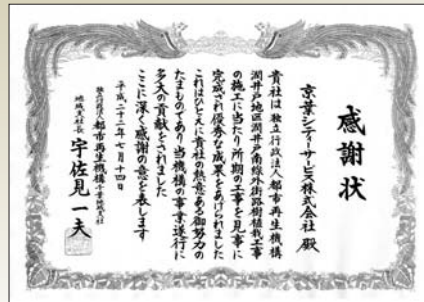 感謝状
京葉シティーサービス株式会社 殿
貴社は独立行政法人都市再生機構
潤井戸地区潤井戸南線外街路樹植栽工事
の施工に当たり所期の工事を見事に
完成され優秀な成果をあげられました
これはひとえに貴社の熱意ある御努力の
たまものであり当機構の事業遂行に
多大の貢献をされました
ここに深く感謝の意を表します
平成二十二年七月十四日
独立行政法人都市再生機構千葉地域支社
地域支社長 宇佐見一夫